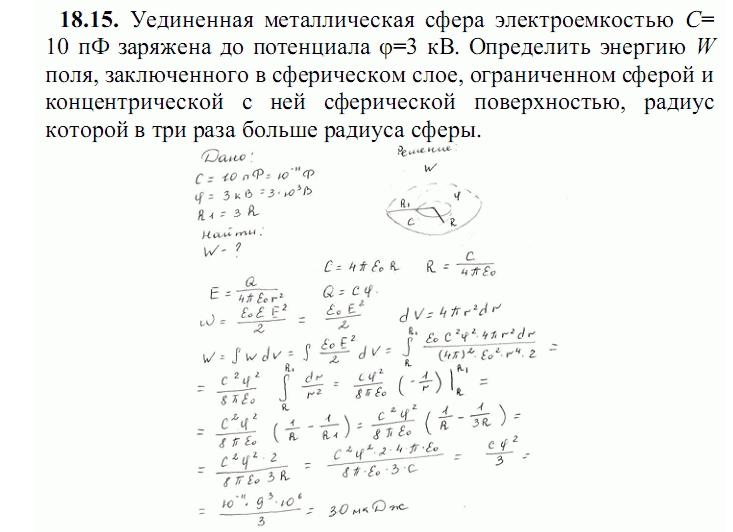 18.15. Уединенная металлическая сфера электроемкостью C=
10 пФ заряжена до потенциала φ=3 кВ. Определить энергию W
поля, заключенного в сферическом слое, ограниченном сферой и
концентрической с ней сферической поверхностью, радиус
которой в три раза больше радиуса сферы.
Дано:
C = 10 пФ = 10⁻¹¹ Ф
φ = 3 кВ = 3·10³ В
R₁ = 3 R
Найти:
W - ?
Решение:
W
R₁ φ
C R
C = 4πε₀R R = C/(4πε₀)
E = Q/(4πε₀r²) Q = Cφ.
w = ε₀εE²/2 = ε₀E²/2 dV = 4πr²dr
W = ∫w dv = ∫ ε₀E²/2 dV = ∫_R^{R₁} ε₀C²φ²·4πr²dr/((4π)²·ε₀²·r⁴·2) =
= C²φ²/(8πε₀) ∫_R^{R₁} dr/r² = Cφ²/(8πε₀) (-1/r)|_R^{R₁} =
= C²φ²/(8πε₀) (1/R - 1/R₁) = C²φ²/(8πε₀) (1/R - 1/3R) =
= C²φ²·2/(8πε₀3R) = C²φ²·2·4π·ε₀/(8π·ε₀·3·C) = Cφ²/3 =
= 10⁻¹¹·9³·10⁶/3 = 30 мкДж